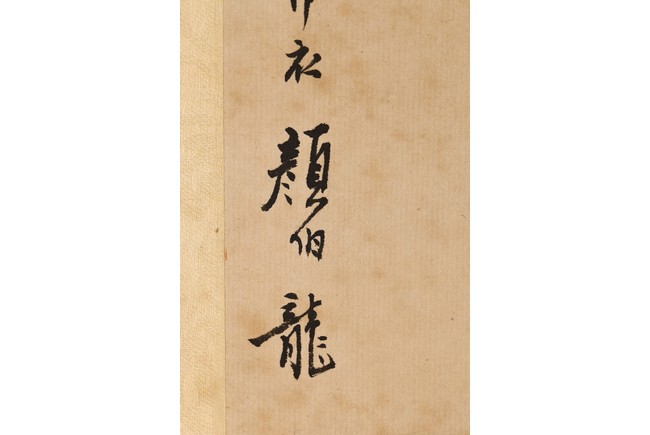 布衣顏伯龍